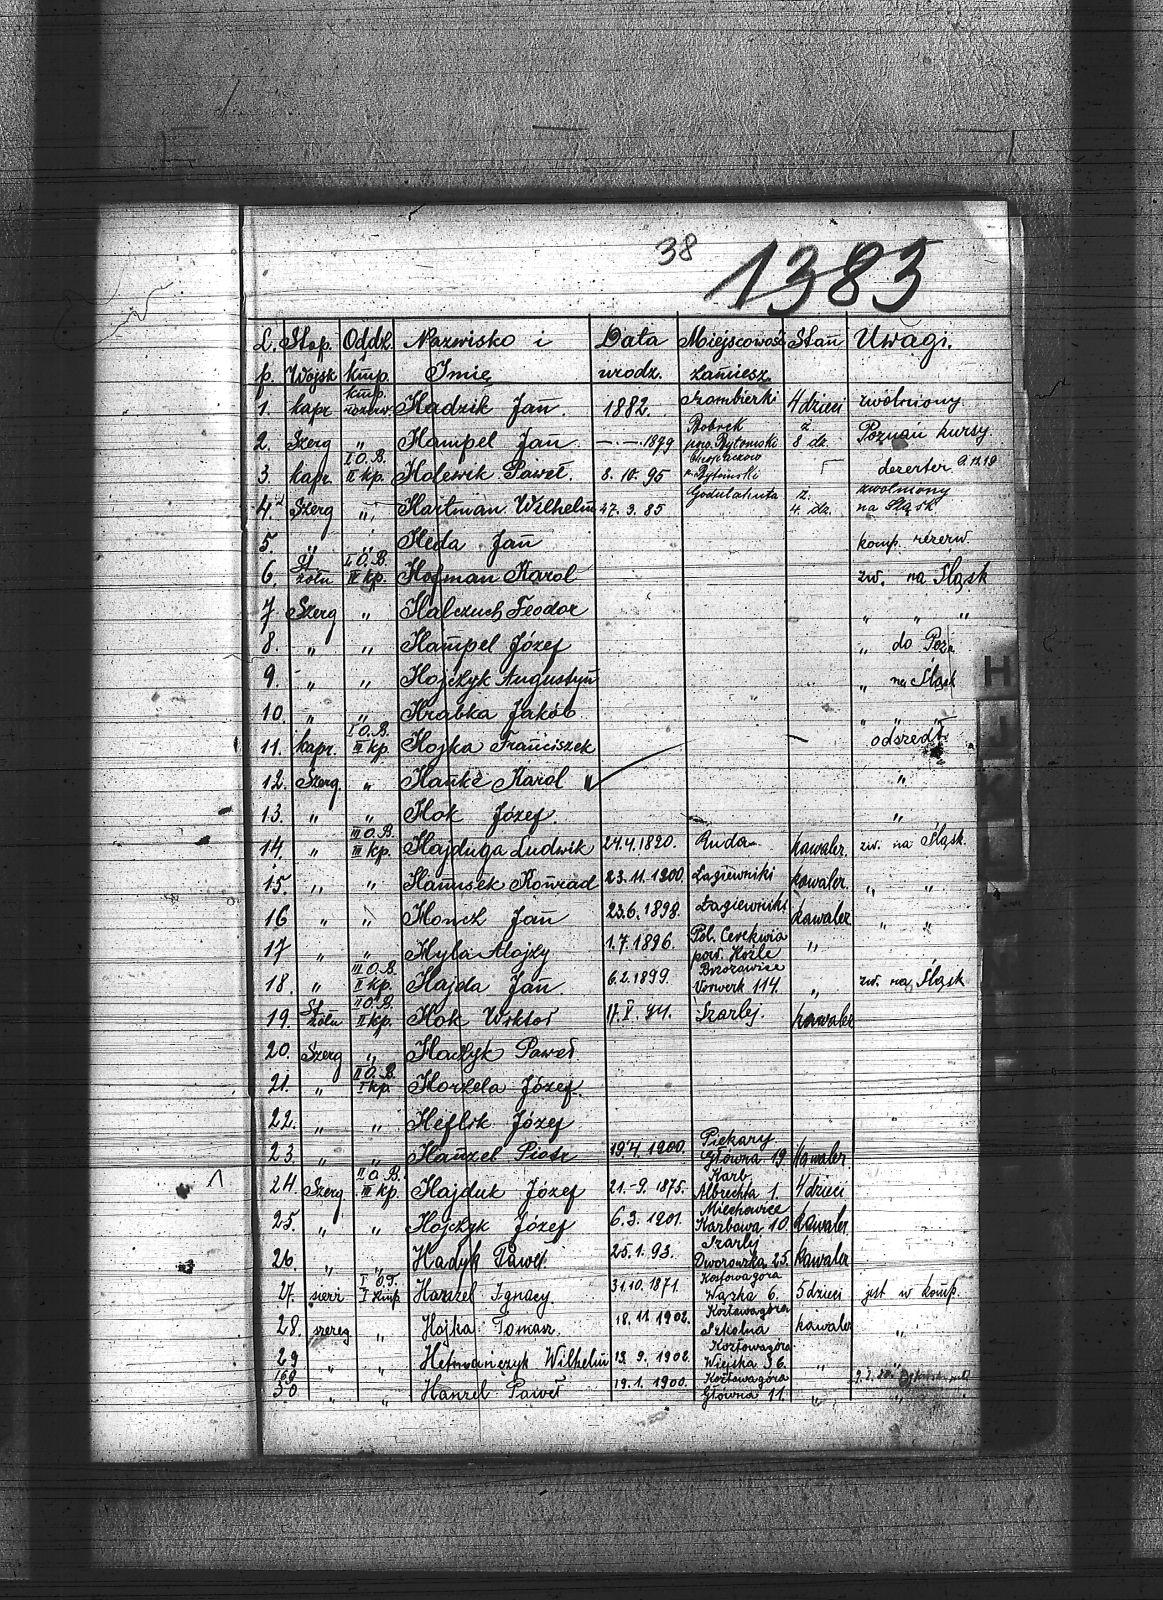 38
1383
L. Stop. Oddz. Nazwisko i Data Miejscowość Stan Uwagi.
p. Wojsk kmp. Imię urodz. zamiesz.
1. kapr kmp. rezerw. Hadzik Jan. 1882. Szombierki 4 dzieci zwolniony
2. Szerg „ Hampel Jan — . — . 1879 Bobrek pow. Bytomski ż. 8 dz. Poznań kursy
3. kapr. I O.B. II kp. Holewik Paweł. 8. 10. 95 Chopaczow p. Bytomski dezerter
4. Szerg „ Hartman Wilhelm 27. 3. 85 Godulahuta ż. 4 dz. zwolniony na Śląsk
5. „ „ Heda Jan komp. rezerw.
6. St żołn I O.B. II kp. Hofman Karol zw. na Śląsk
7 Szerg „ Halczuch Teodor „ „ „
8. „ „ Hampel Józef „ do Pozn
9. „ „ Hojczyk Augustyn „ na Śląsk
10. „ „ Hrabka Jakób „ „ „
11. kapr. I O.B. III kp. Hojka Franciszek odszedł
12. Szerg. „ Hanke Karol „
13. „ „ Hok Józef „
14. „ III O.B. III kp. Hajduga Ludwik 24.4.1820. Ruda kawaler. zw. na Śląsk.
15. „ „ Hanusek Konrad 23.11.1900. Łagiewniki kawaler. „ „
16 „ „ Honcz Jan 23.6.1898. Łagiewniki kawaler „ „
17 „ „ Hyla Alojzy 1.7.1896. Pol. Cerekwia pow. Koźle „
18. „ III O.B. II kp. Hajda Jan. 6.2.1899. Brzozowice Vorwerk 114. „ zw. na Śląsk
19. St żołn II O.B. II kp. Hok Wiktor Szarlej. kawaler
20. Szerg „ Haczyk Paweł
21. „ II O.B. I kp. Horzela Józef.
22. „ „ Heflik Józef
23. „ „ Hanzel Piotr 19.4.1900. Piekary Główna 19 kawaler
24. Szerg II O.B. III kp. Hajduk Józef 21.-9.1875. Karb Albrechta 1. 4 dzieci
25. „ „ Hojczyk Józef 6.3.1901. Miechowice Karbowa 10. kawaler
26. „ „ Hadyk Paweł 25.1.93. Szarlej Dworowska 25. kawaler
27. sierż I O.T. I kmp. Hanzel Ignacy. 31.10.1871. Kozłowagóra Wąska 6. 5 dzieci jest w komp.
28. szereg „ Hojka Tomasz. 18.11.1902. Kozłowagóra Szkolna kawaler „
29 „ „ Hetmańczyk Wilhelm 13. 9. 1902. Kozłowagóra Wiejska 36. „ „
169
30 „ „ Hanzel Paweł 19.1. 1900. Kozłowagóra Główna 11. „ „